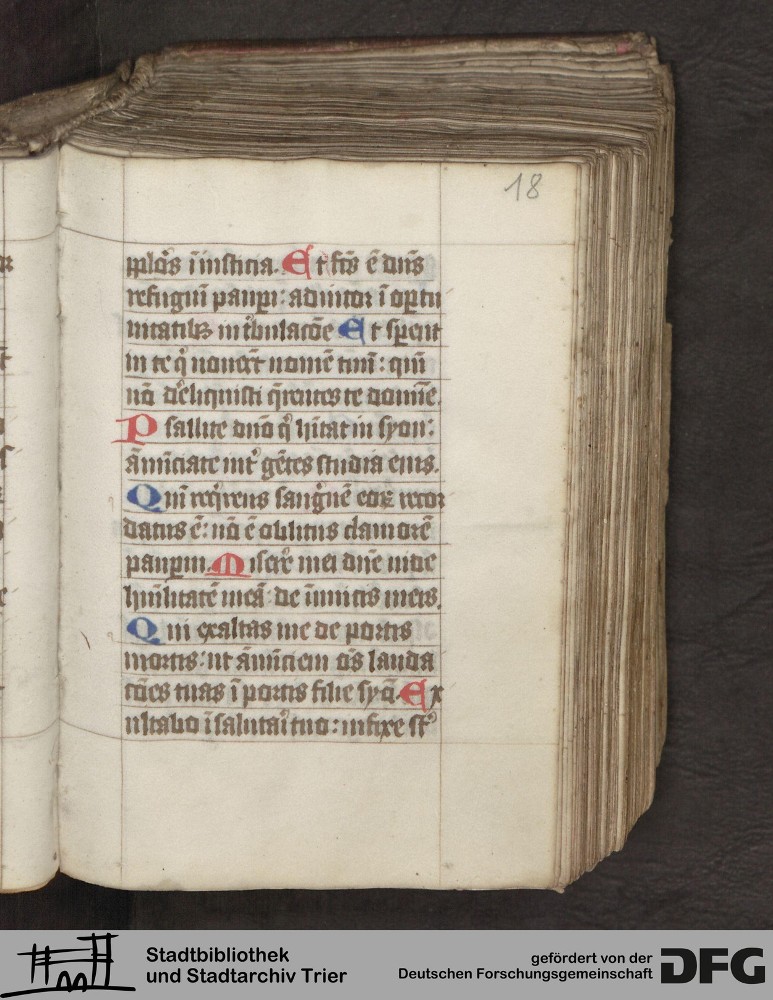 18
pplōs ī iusticia. Et fcūs ē dn̄s
refugiū paupi: adiutor ī oportu
nitatibꝫ in tͥbulacōe Et sperēt
in te qͥ nouerūt nomē tuū: qm̄
nō dereliquisti q̄rentes te domīe.
Psallite dn̄o qͥ hītat in syon:
ānūciate intͬ gētes studia eius.
Quī reqͥrens sanguinē eoꝝ recor
datus ē: nō ē oblitus clamorē
paupum. Miserͤre mei dn̄e uide
hūilitatē meā: de inimicis meis.
Qui exaltas me de portis
mortis: ut ānūciem oēs lauda
cōes tuas ī portis filie syō. Ex
ultabo ī salutarͥ tuo: infixe sͭ
Stadtbibliothek
und Stadtarchiv Trier
gefördert von der
Deutschen Forschungsgemeinschaft
DFG